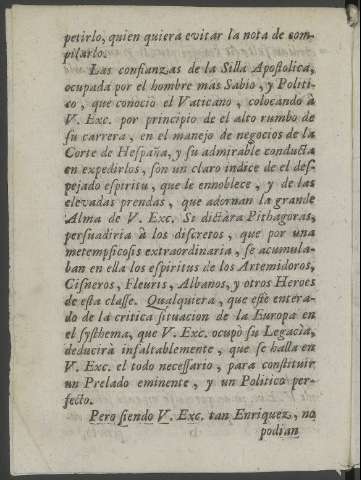 petirlo, quien quiera evitar la nota de com-
pilarlo.
Las confianzas de la Silla Apostolica,
ocupada por el hombre màs Sabio, y Politi-
co, que conociò el Vaticano, colocando à
V. Exc. por principio de el alto rumbo de
su carrera, en el manejo de negocios de la
Corte de Hespaña, y su admirable conducta
en expedirlos, son un claro indice de el des-
pejado espiritu, que le ennoblece, y de las
elevadas prendas, que adornan la grande
Alma de V. Exc. Si dictàra Pithagoras,
persuadiria à los discretos, que por una
metempsicosis extraordinaria, se acumula-
ban en ella los espiritus de los Artemidoros,
Cisneros, Fleuris, Albanos, y otros Heroes
de esta classe. Qualquiera, que estè entera-
do de la critica situacion de la Europa en
el systhema, que V. Exc. ocupò su Legacìa,
deducirà infaltablemente, que se halla en
V. Exc. el todo necessario, para constituir
un Prelado eminente, y un Politico per-
fecto.
Pero siendo V. Exc. tan Enriquez, no
podian